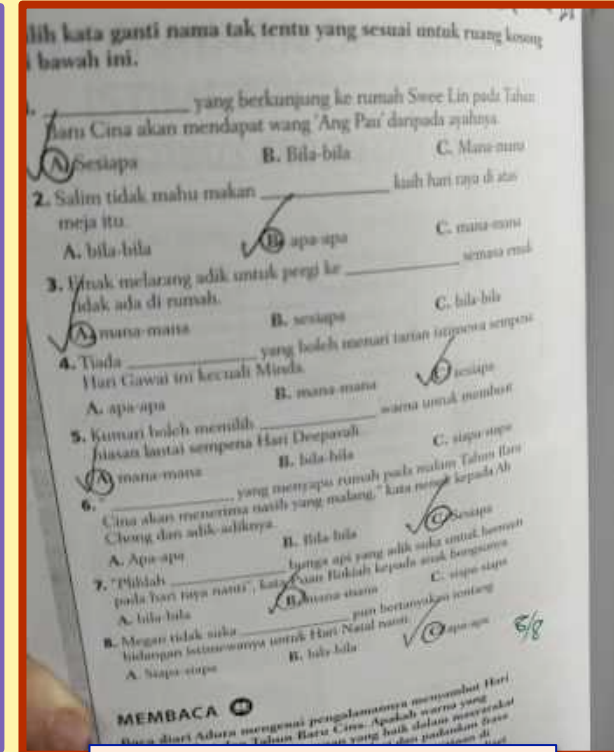 lih kata ganti nama tak tentu yang sesuai untuk ruang kosong
bawah ini.
yang berkunjung ke rumah Swee Lin pada Tahun
Baru Cina akan mendapat wang 'Ang Pau' daripada ayahnya.
A. Sesiapa B. Bila-bila C. Mana-mana
2. Salim tidak mahu makan ________ kuih hari raya di atas
meja itu.
A. bila-bila B. apa-apa C. mana-mana
3. Emak melarang adik untuk pergi ke ________ semasa emak
tidak ada di rumah.
A. mana-mana B. sesiapa C. bila-bila
4. Tiada ________ yang boleh menari tarian istimewa sempena
Hari Gawai ini kecuali Minda.
A. apa-apa B. mana-mana C. sesiapa
5. Kumari boleh memilih ________ warna untuk membuat
hiasan lantai sempena Hari Deepavali.
A. mana-mana B. bila-bila C. siapa-siapa
6. "________ yang menyapu rumah pada malam Tahun Baru
Cina akan menerima nasib yang malang," kata nenek kepada Ah
Chong dan adik-adiknya.
A. Apa-apa B. Bila-bila C. Sesiapa
7. "Pilihlah ________ bunga api yang adik suka untuk bermain
pada hari raya nanti", kata Puan Rokiah kepada anak bongsunya.
A. bila-bila B. mana-mana C. siapa-siapa
8. Megan tidak suka ________ pun bertanyakan tentang
hidangan istimewanya untuk Hari Natal nanti.
A. Siapa-siapa B. bila-bila C. apa-apa
8/8
MEMBACA
Baca diari Adura mengenai pengalamannya menyambut Hari
Tahun Baru Cina. Apakah warna yang
yang baik dalam masyarakat
dan padankan frasa